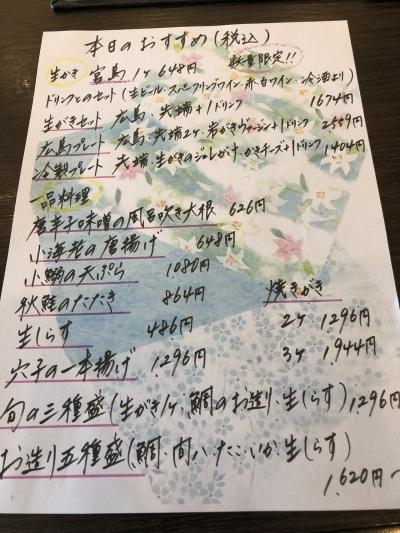 本日のおすすめ(税込)
数量限定!!
生かき 宮島 1ヶ 648円
ドリンクとのセット(生ビール・スパークリングワイン・赤白ワイン・冷酒より)
生がきセット 広島、矢端+1ドリンク 1674円
広島プレート 広島、矢端2ヶ・岩がきヴァージン+1ドリンク 2559円
冷製プレート 矢端、生かきのジュレがけ、かきチーズ+1ドリンク 1404円
一品料理
唐辛子味噌の風呂吹き大根 626円
小海老の唐揚げ 648円
小鯵の天ぷら 1,080円
秋鮭のたたき 864円
生しらす 486円
穴子の一本揚げ 1,296円
焼きがき
2ヶ 1,296円
3ヶ 1,944円
旬の三種盛(生がき1ヶ、鯛のお造り、生しらす)1,296円
お造り五種盛(鯛・間八・たこ・いか・生しらす)
1,620円~